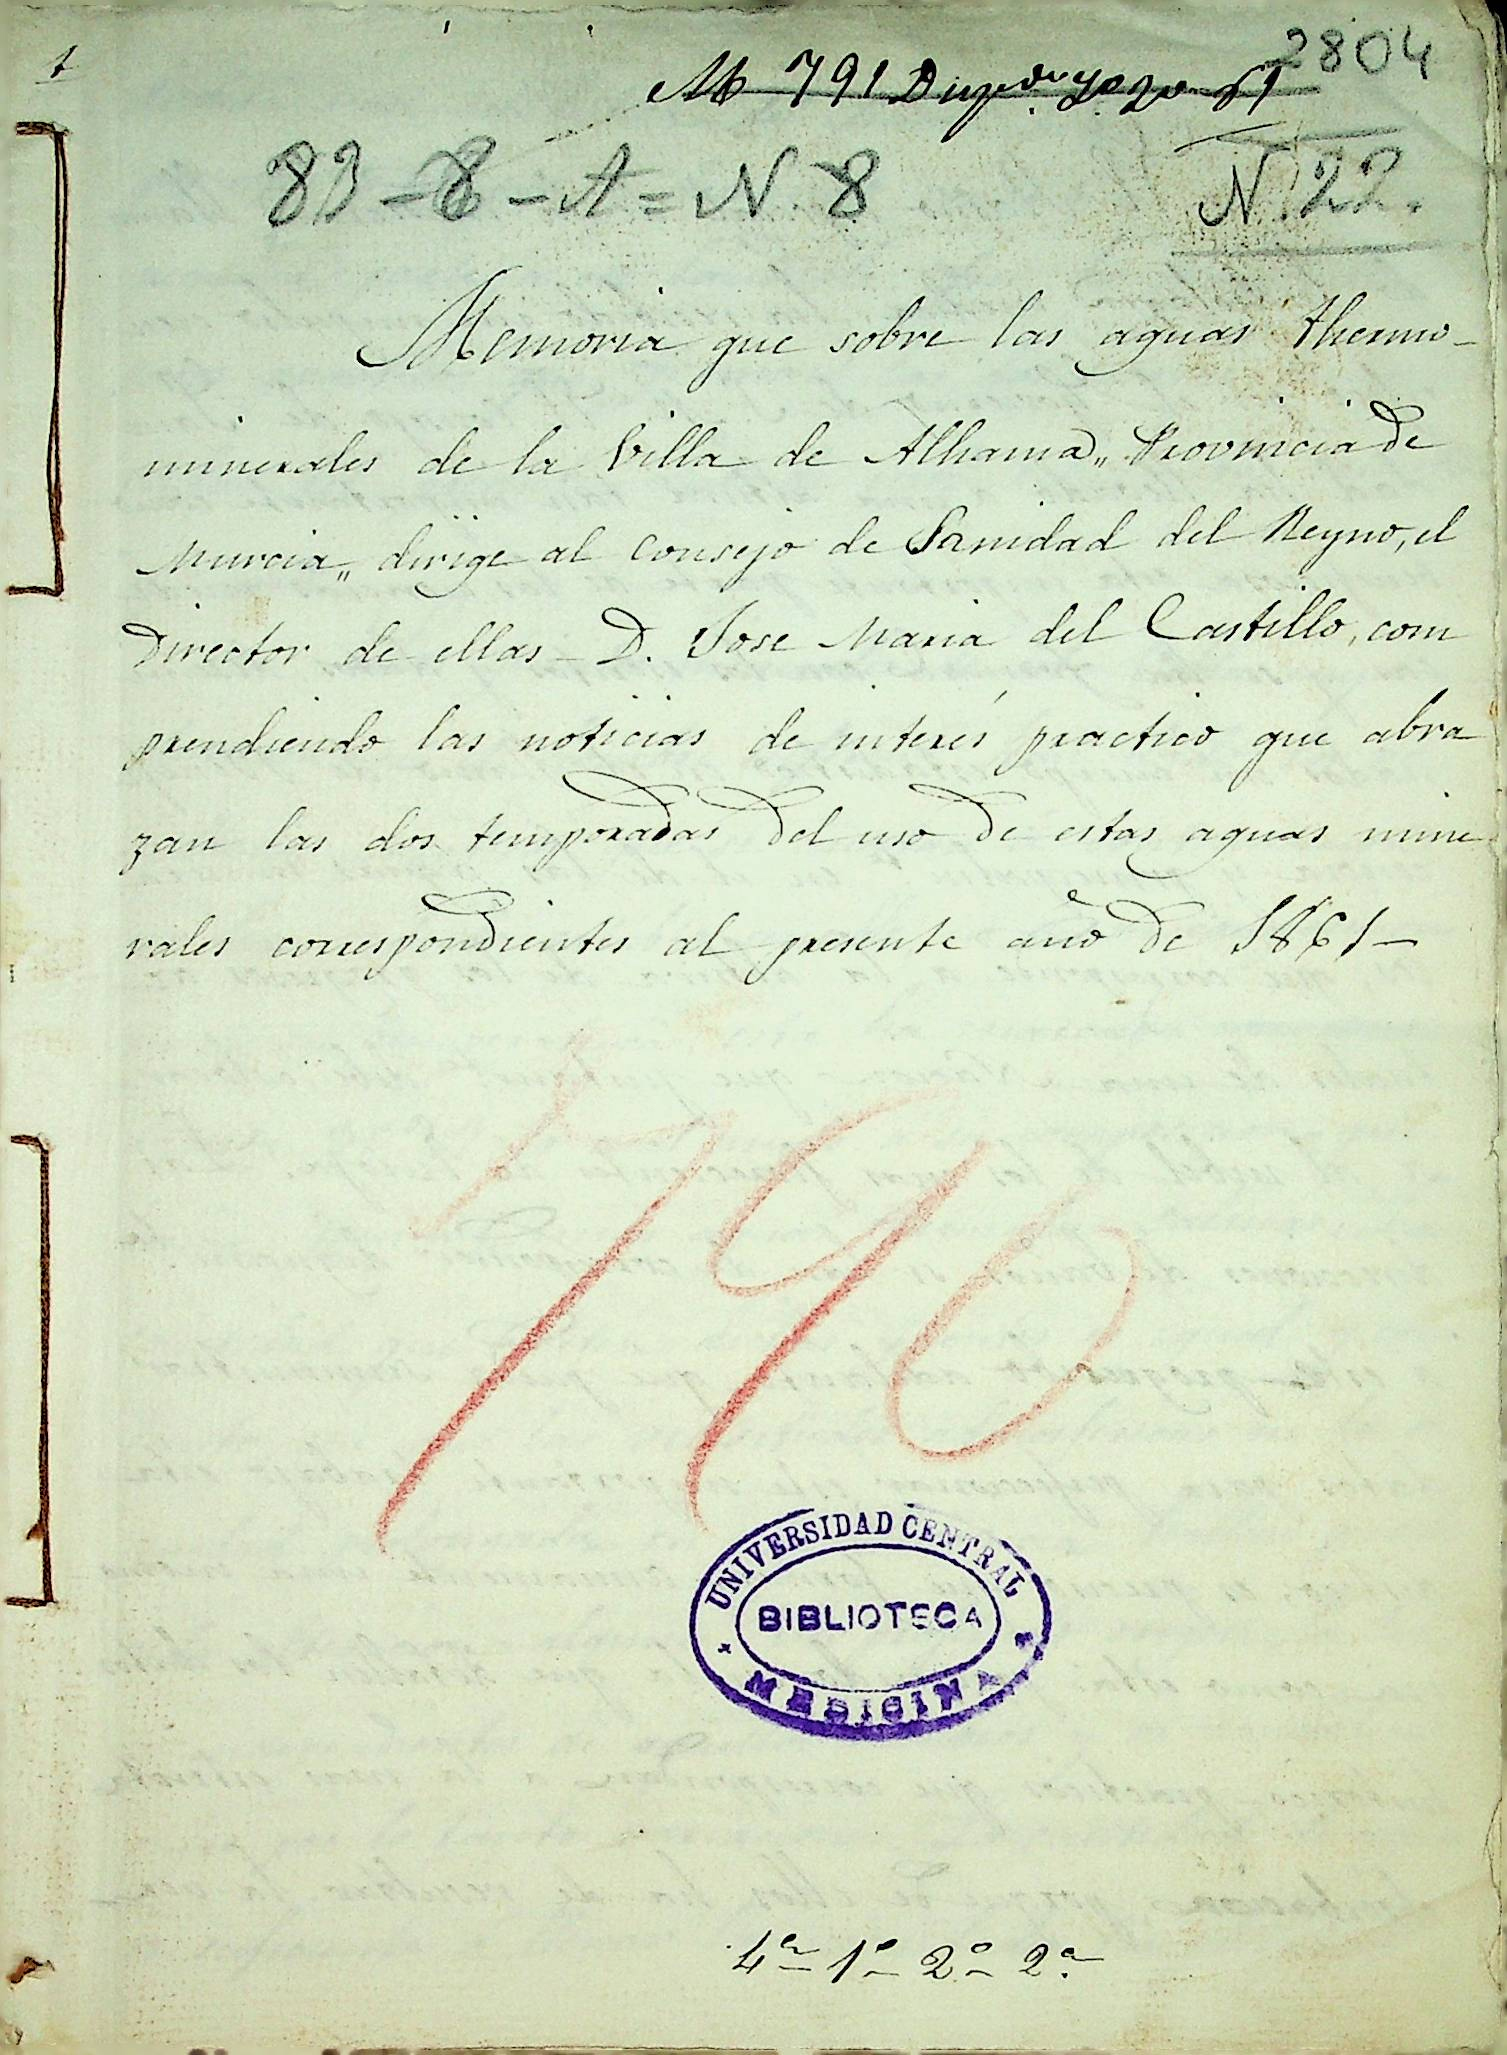 2804
791
83-8-A=N 8
N. 22.
Memoria que sobre las aguas thermo-
minerales de la Villa de Alhama„ Provincia de
Murcia„ dirige al Consejo de Sanidad del Reyno, el
Director de ellas - D. Jose Maria del Castillo, com
prendiendo las noticias de interés practico que abra
zan las dos temporadas del uso de estas aguas mine
rales correspondientes al presente año de 1861-
790
UNIVERSIDAD CENTRAL
BIBLIOTECA
MEDICINA
4ª 1º 2º 2ª